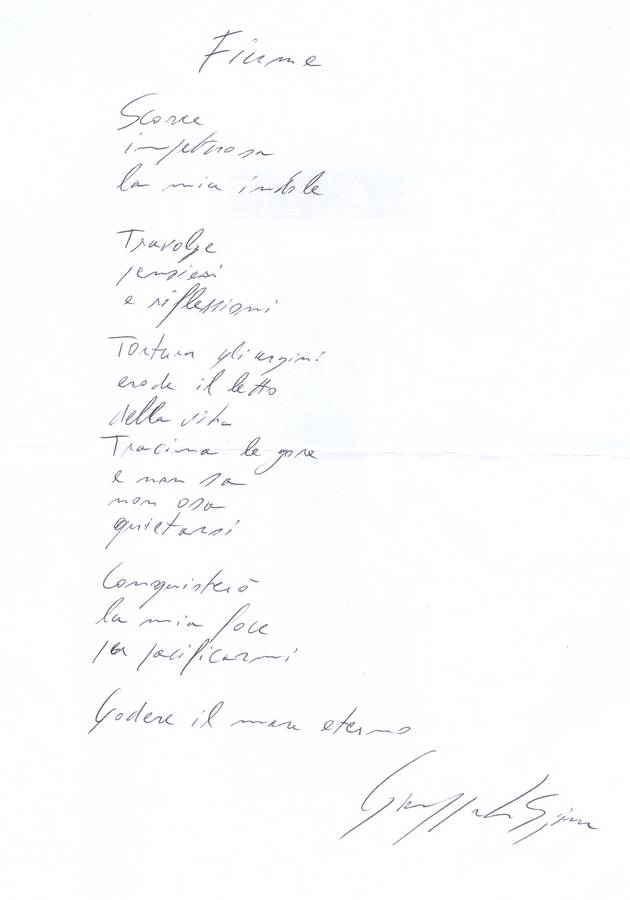 Fiume
Scorre
impetuosa
la mia indole
Travolge
pensieri
e riflessioni
Tortura gli argini
erode il letto
della vita
Tracima le gore
e non sa
non osa
quietarsi
Conquisterò
la mia foce
per pacificarmi
Godere il mare eterno